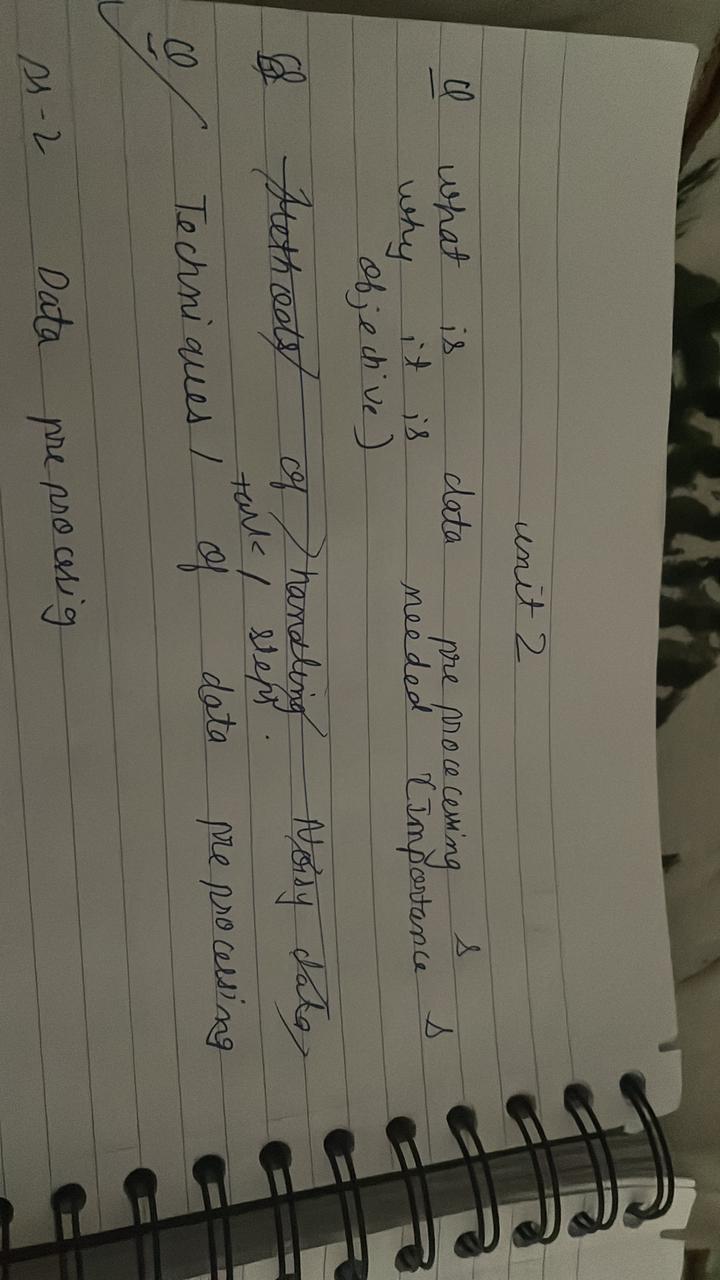 unit 2
Q what is data preprocecessing &
why it is needed (Importance &
objective)
Q Methods of handling Noisy data
task / steps.
Q Techniques / of data preprocessing
Data preprocesig